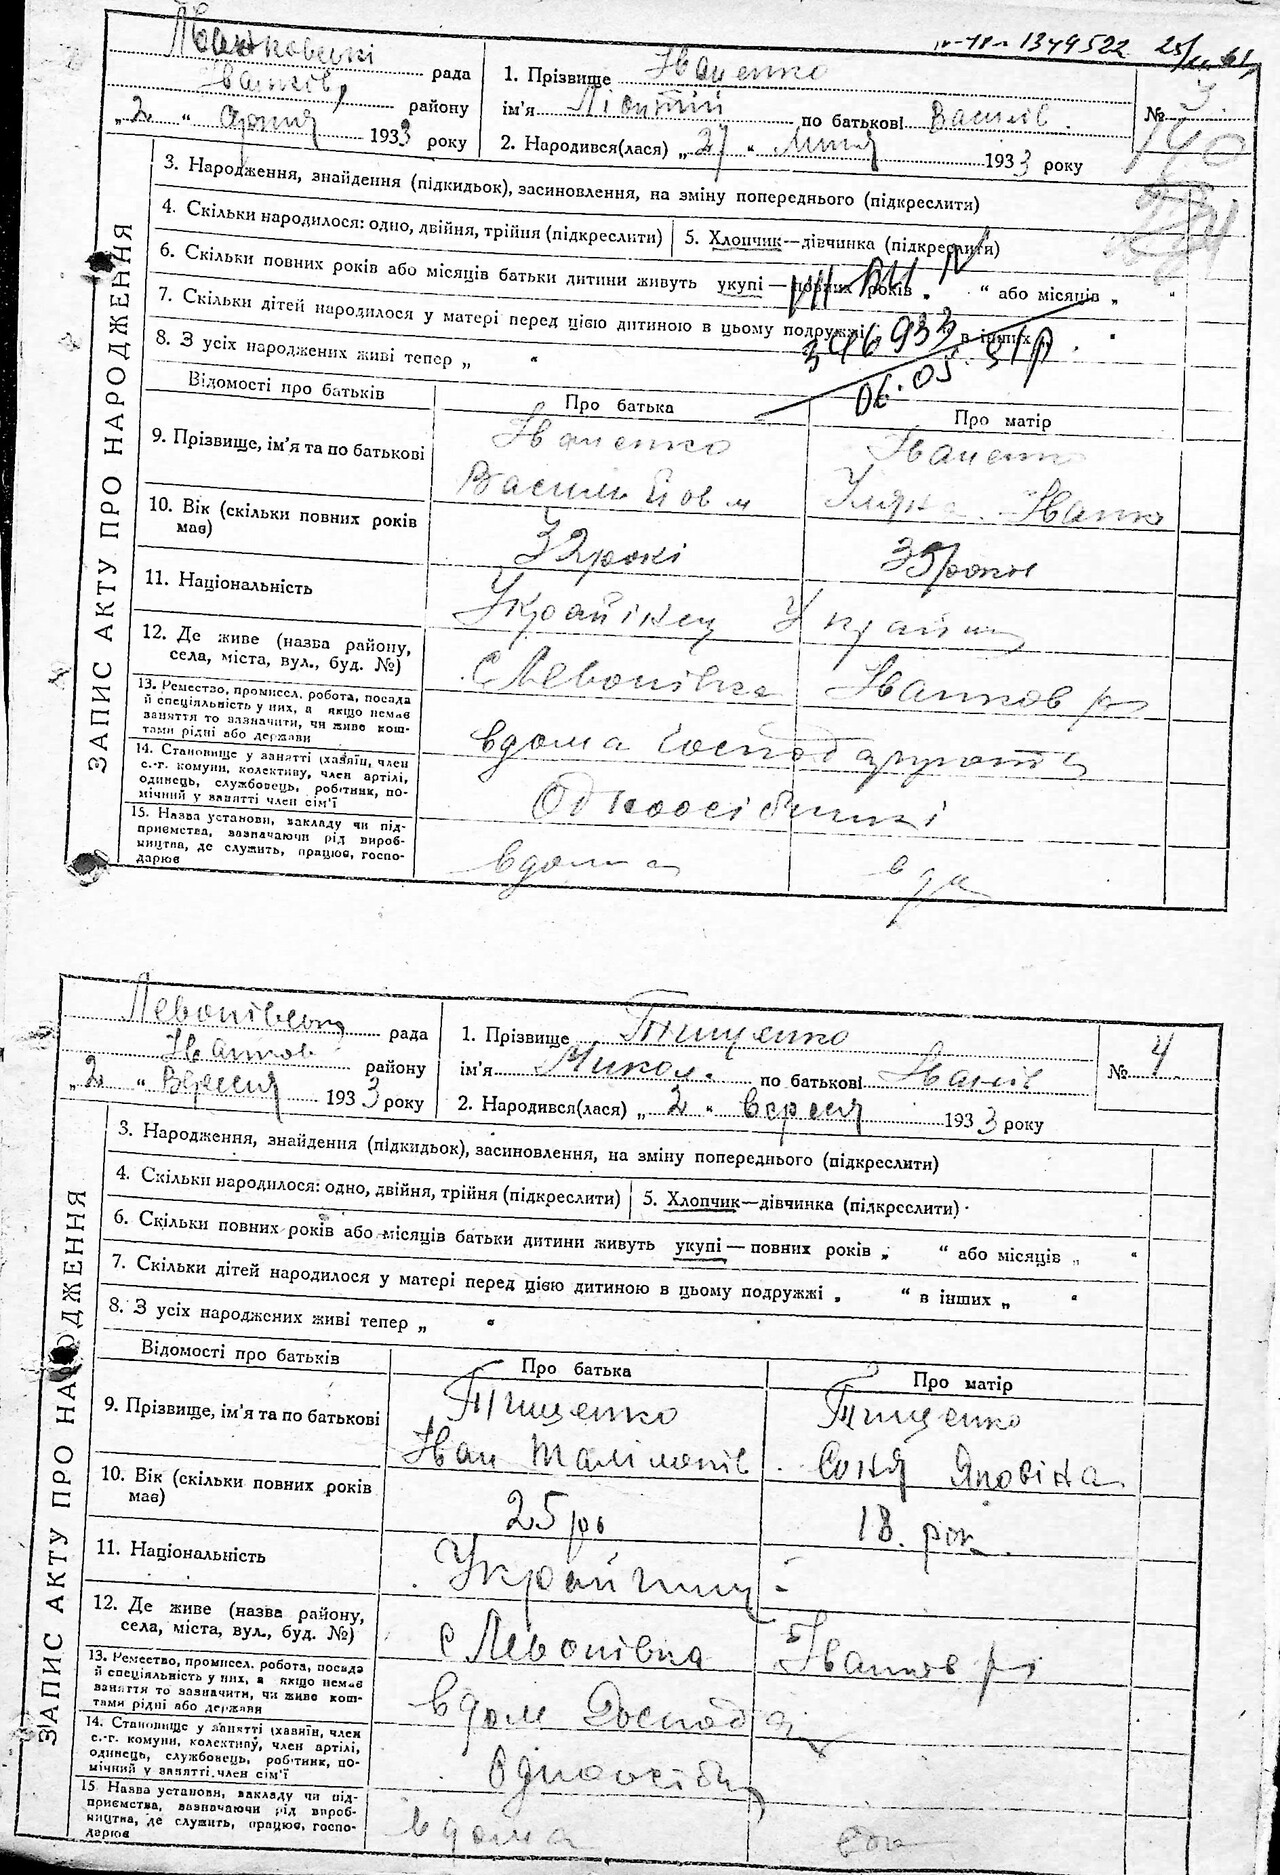 рада
району
„ 2 “ 1933 року
1. Прізвище Іваненко
ім'я по батькові Василів.
2. Народився(лася) „ 27 “ Липня 1933 року
№ 3.
140
1349522
3. Народження, знайдення (підкидьок), засиновлення, на зміну попереднього (підкреслити)
4. Скільки народилося: одно, двійня, трійня (підкреслити) 5. Хлопчик—дівчинка (підкреслити)
6. Скільки повних років або місяців батьки дитини живуть укупі—повних років „ “ або місяців „ “
7. Скільки дітей народилося у матері перед цією дитиною в цьому подружжі „ “ в інших „ “
8. З усіх народжених живі тепер „ “
346933
06.05.
ЗАПИС АКТУ ПРО НАРОДЖЕННЯ
Відомості про батьків Про батька Про матір
9. Прізвище, ім'я та по батькові
Іваненко Іваненко
Василь Уляна
10. Вік (скільки повних років має)
32 рокі 35 років
11. Національність
Українец
12. Де живе (назва району, села, міста, вул., буд. №)
с Леонівка Іванков р
13. Ремество, промисел, робота, посада
й спеціяльність у них, а якщо немає
заняття то зазначити, чи живе кош-
тами рідні або держави
вдома
14. Становище у занятті (хазяїн, член
с.-г. комуни, колективу, член артілі,
одинець, службовець, робітник, по-
мічний у занятті член сім'ї
Одноосібники
15. Назва установи, закладу чи під-
приємства, зазначаючи рід вироб-
ництва, де служить, працює, госпо-
дарює
вдома
рада
району
„ 2 “ Вересня 1933 року
1. Прізвище Тищенко
ім'я Микол. по батькові Іванів
2. Народився(лася) „ 2 “ вересня 1933 року
№ 4.
3. Народження, знайдення (підкидьок), засиновлення, на зміну попереднього (підкреслити)
4. Скільки народилося: одно, двійня, трійня (підкреслити) 5. Хлопчик—дівчинка (підкреслити)
6. Скільки повних років або місяців батьки дитини живуть укупі—повних років „ “ або місяців „ “
7. Скільки дітей народилося у матері перед цією дитиною в цьому подружжі „ “ в інших „ “
8. З усіх народжених живі тепер „ “
ЗАПИС АКТУ ПРО НАРОДЖЕННЯ
Відомості про батьків Про батька Про матір
9. Прізвище, ім'я та по батькові
Тищенко Тищенко
Іван Соня
10. Вік (скільки повних років має)
25 ро 18. рок
11. Національність
12. Де живе (назва району, села, міста, вул., буд. №)
с Леонівка Іванков р
13. Ремество, промисел, робота, посада
й спеціяльність у них, а якщо немає
заняття то зазначити, чи живе кош-
тами рідні або держави
вдом
14. Становище у занятті (хазяїн, член
с.-г. комуни, колективу, член артілі,
одинець, службовець, робітник, по-
мічний у занятті член сім'ї
15. Назва установи, закладу чи під-
приємства, зазначаючи рід вироб-
ництва, де служить, працює, госпо-
дарює
вдома